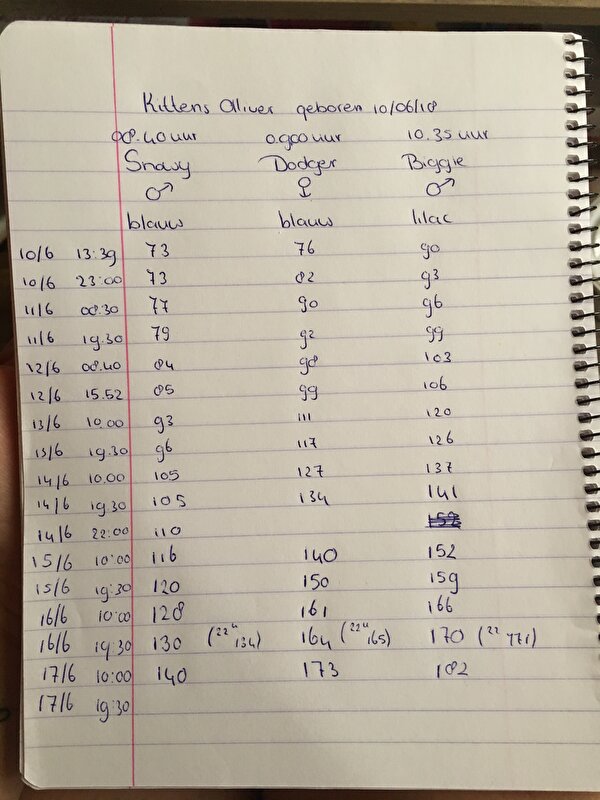 Kittens Olliver geboren 10/06/18
08.40 uur 0.900 uur 10.35 uur
Snowy Dodger Biggie
♂ ♀ ♂
blauw blauw lilac
10/6 13:39 73 76 90
10/6 23:00 73 82 93
11/6 08.30 77 90 96
11/6 19.30 79 92 99
12/6 08.40 84 98 103
12/6 15.52 85 99 106
13/6 10.00 93 111 120
13/6 19.30 96 117 126
14/6 10.00 105 127 137
14/6 19.30 105 134 141
14/6 22:00 110
15/6 10:00 116 140 152
15/6 19:30 120 150 159
16/6 10:00 128 161 166
16/6 19:30 130 (22u 134) 164 (22u 165) 170 (22 171)
17/6 10:00 140 173 182
17/6 19:30